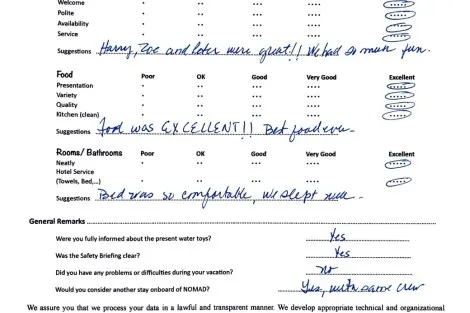 Welcome • •• ••• •••• •••••
Polite • •• ••• •••• •••••
Availability • •• ••• •••• •••••
Service • •• ••• •••• •••••
Suggestions Harry, Zoe and Peter were great!! We had so much fun.
Food Poor OK Good Very Good Excellent
Presentation • •• ••• •••• •••••
Variety • •• ••• •••• •••••
Quality • •• ••• •••• •••••
Kitchen (clean) • •• ••• •••• •••••
Suggestions food was EXCELLENT!! Best food ever.
Rooms/ Bathrooms Poor OK Good Very Good Excellent
Neatly • •• ••• •••• •••••
Hotel Service
(Towels, Bed,...) • •• ••• •••• •••••
Suggestions Bed was so comfortable, we slept well.
General Remarks
Were you fully informed about the present water toys? Yes
Was the Safety Briefing clear? Yes
Did you have any problems or difficulties during your vacation? no
Would you consider another stay onboard of NOMAD? Yes, with same crew
We assure you that we process your data in a lawful and transparent manner. We develop appropriate technical and organizational